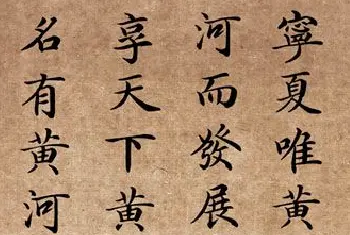 寧夏唯黃
河而發展
享天下黃
名有黃河